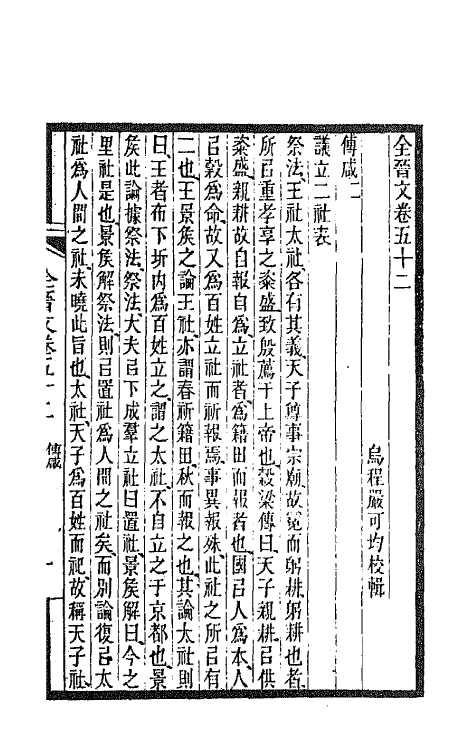 全晉文卷五十二
烏程嚴可均校輯
傅咸二
議立二社表
祭法王社太社各有其義天子尊事宗廟故冕而躬耕躬耕也者
所㠯重孝享之粢盛致殷薦于上帝也穀梁傳曰天子親耕㠯供
粢盛親耕故自報自爲立社者爲籍田而報者也國㠯人爲本人
㠯穀爲命故又爲百姓立社而祈報焉事異報殊此社之所㠯有
二也王景矦之論王社亦謂春祈籍田秋而報之也其論太社則
曰王者布下圻內爲百姓立之謂之太社不自立之于京都也景
矦此論據祭法祭法大夫㠯下成羣立社曰置社景矦解曰今之
里社是也景矦解祭法則㠯置社爲人間之社矣而別論復㠯太
社爲人間之社未曉此旨也太社天子爲百姓而祀故稱天子社
全晉文卷五十二 傅咸 一